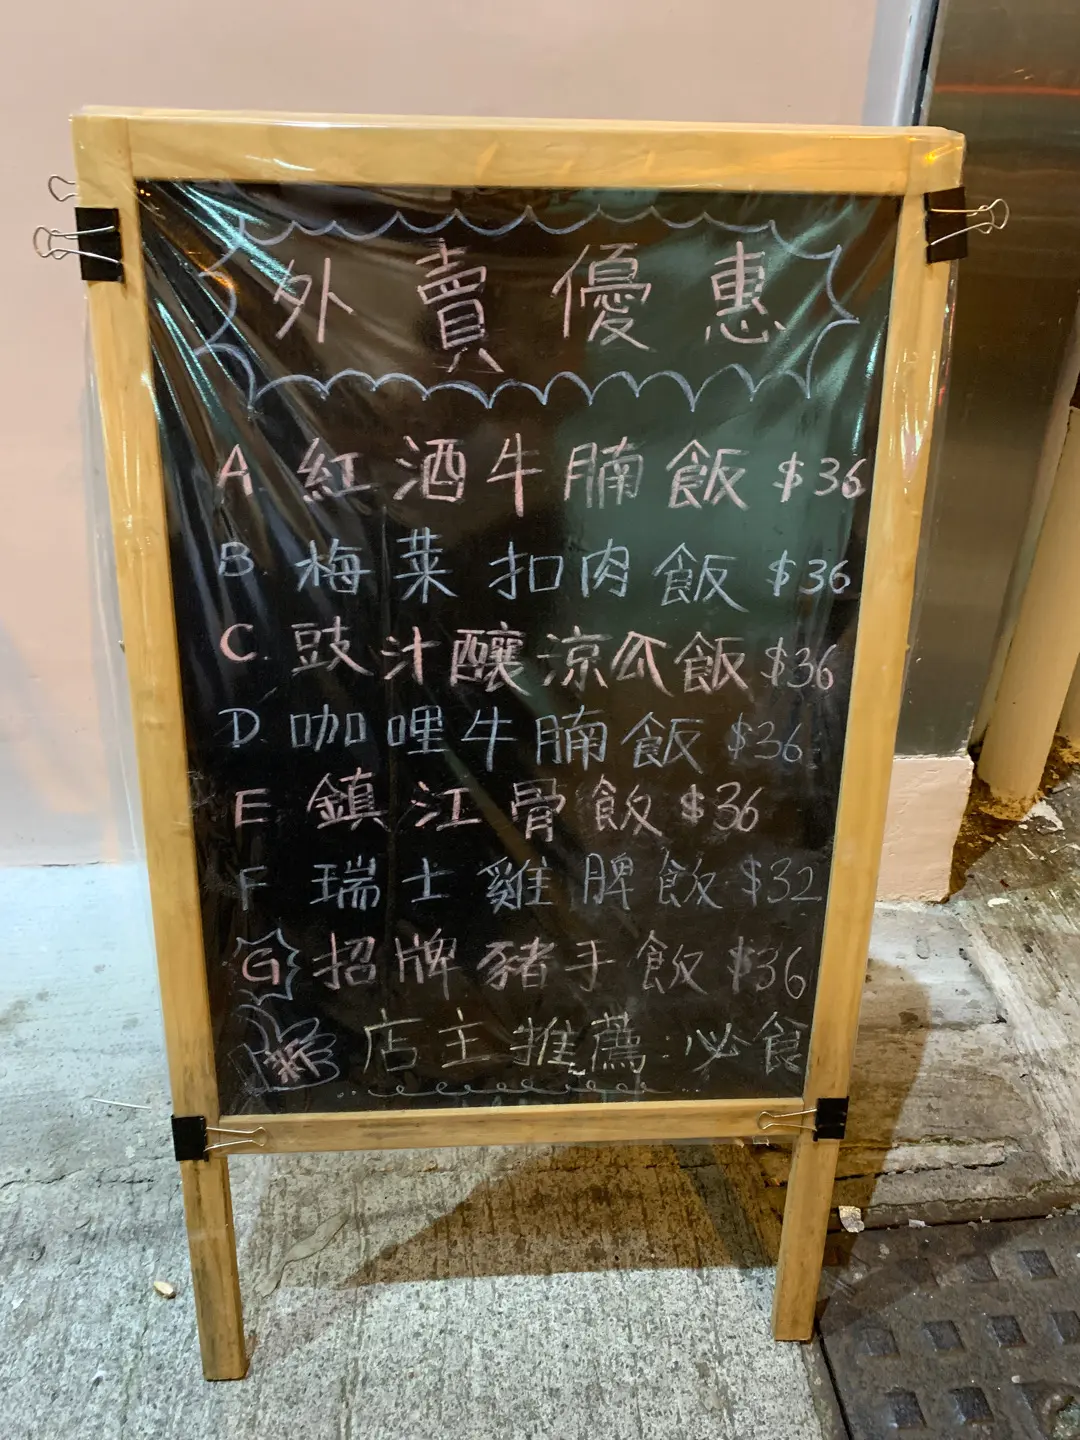 外賣優惠
A. 紅酒牛腩飯 $36
B. 梅菜扣肉飯 $36
C. 豉汁釀涼瓜飯 $36
D. 咖哩牛腩飯 $36
E. 鎮江骨飯 $36
F 瑞士雞脾飯 $32
G 招牌豬手飯 $36
店主推薦:必食